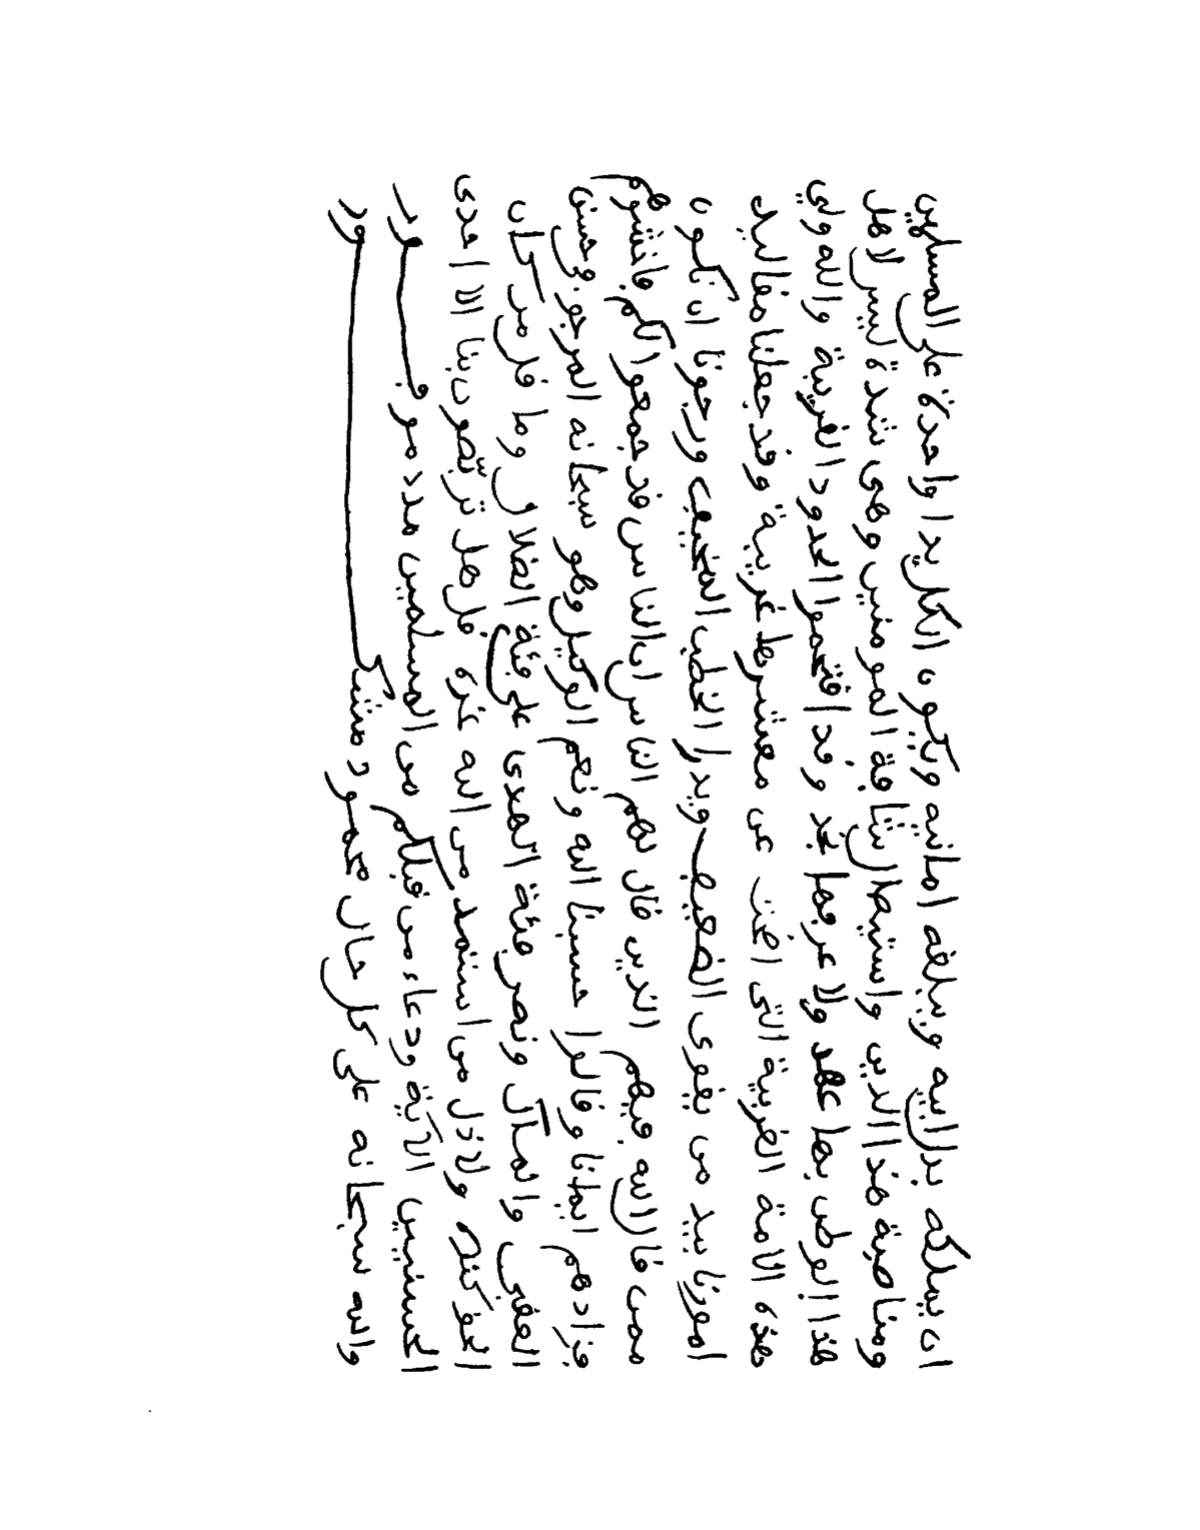 ان يملكه ويبلغه امانيه ويكون الكل يدا واحدة على المسلمين
ومناصبة هذا الدين واستيصال شافة المومنين وهى شدة ليس لاهل
هذا الوطن بها عهد ولا عرفها نجد وقد اقتحموا الحدود الغربية والله ولي
هذه الامة الغربية التى اضحت عن معشرها غريبة وقد جعلنا مقاليد
امورنا بيد من يقوى الضعيف ويدرا الخطب المخيف ورجونا ان نكون
ممن قال الله فيهم الذين قال لهم الناس ان الناس قد جمعوا لكم فاخشوهم
فزادهم ايمانا وقالوا حسبنا الله ونعم الوكيل وهو سبحانه المرجو فى حسن
العقبى والمآل ونصر فئة الهدى على فئة الضلال وما قل من كان
الحق كنزه ولا ذل من استمد من الله عزه قل هل تربّصون بنا الا احدى
الحسنيين الآية ودعاء من قبلكم من المسلمين مدد موفور
والله سبحانه على كل حال محمود مشكور